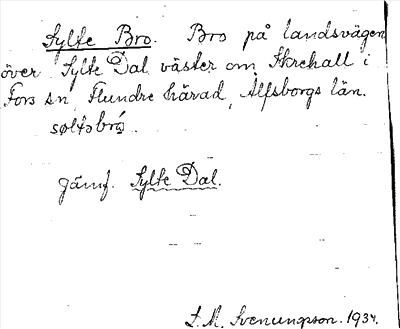 Sylte Bro. Bro på landsvägen
över Sylte Dal väster om Skrehall i
Fors sn, Flundre härad, Älfsborgs län.
søltəbró.
Jämf. Sylte Dal.
L. M. Svenungsson. 1934.